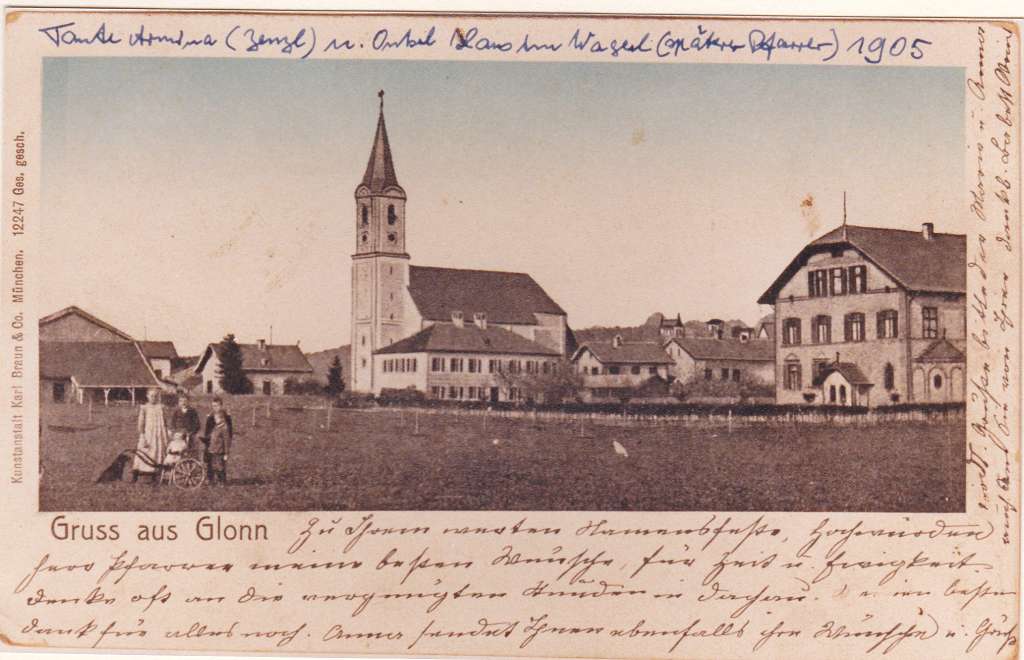 Tante Armina (Zenzl) u. Onkel Hans im Wagerl (später Pfarrer) 1905
Kunstanstalt Karl Braun & Co. München. 12247 Ges. gesch.
Gruss aus Glonn
Zu Ihrem werten Namensfeste, Hochwürden
Herr Pfarrer meine besten Wünsche, für Zeit u. Ewigkeit
denke oft an die vergnügten Stunden in Dachau. besten
Dank für alles noch. Anna sendet Ihnen ebenfalls ihre Wünsche u. Grüße
Grüßen bitte das u. Anna
von Ihrer dankb.